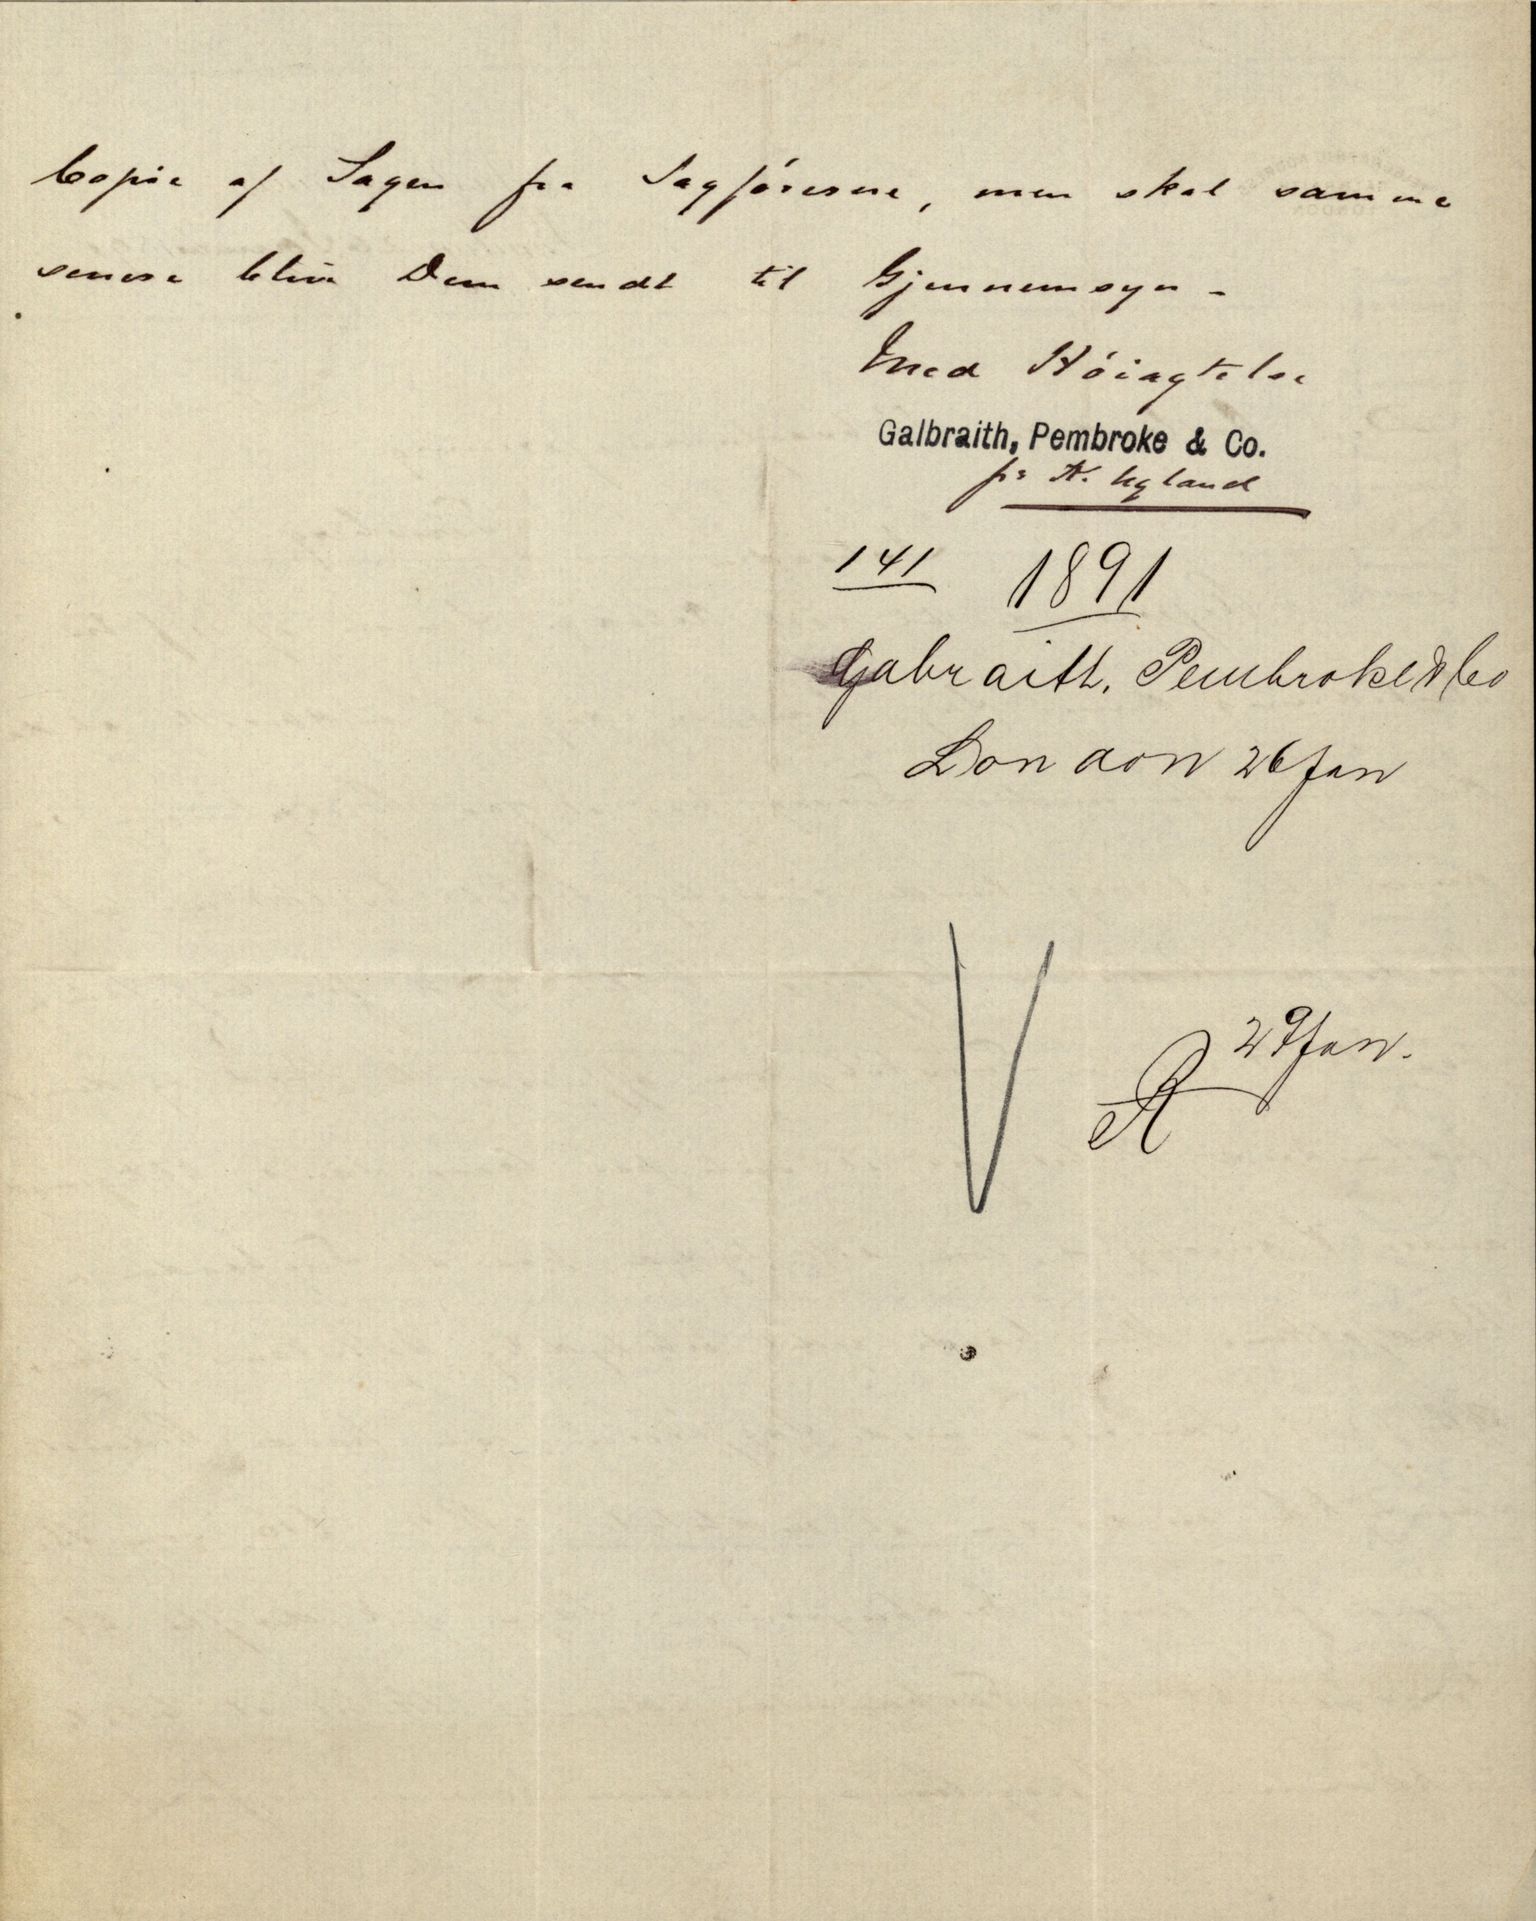 Copie af Sagen fra Sagförerne, men skal samme
senere blive Dem sendt til Gjennemsyn -
Med Höiagtelse
Galbraith, Pembroke & Co.
pr A. Ugland
141 1891
Gabraith. Pembroke & Co
London 26 Jan
29 Jan.
R